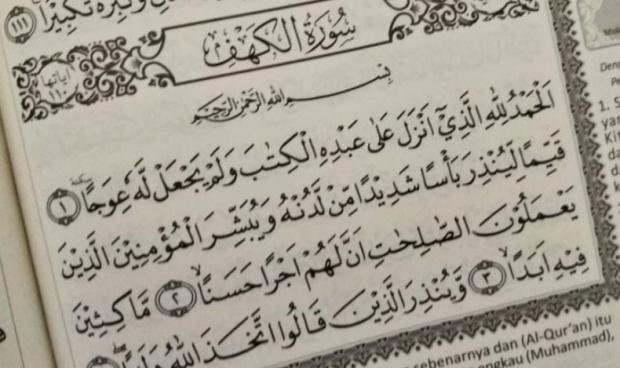 وَكَبِّرْهُ تَكْبِيْرًا ۝١١١
سُوْرَةُ الْكَهْفِ
اٰياتها ١١٠
بِسْمِ اللّٰهِ الرَّحْمٰنِ الرَّحِيْمِ
اَلْحَمْدُ لِلّٰهِ الَّذِيْٓ اَنْزَلَ عَلٰى عَبْدِهِ الْكِتٰبَ وَلَمْ يَجْعَلْ لَّهٗ عِوَجًا ۝١
قَيِّمًا لِّيُنْذِرَ بَأْسًا شَدِيْدًا مِّنْ لَّدُنْهُ وَيُبَشِّرَ الْمُؤْمِنِيْنَ الَّذِيْنَ
يَعْمَلُوْنَ الصّٰلِحٰتِ اَنَّ لَهُمْ اَجْرًا حَسَنًا ۝٢ مَّاكِثِيْنَ
فِيْهِ اَبَدًا ۝٣ وَّيُنْذِرَ الَّذِيْنَ قَالُوا اتَّخَذَ اللّٰهُ وَلَدًا
1. S
sebenarnya dan (Al-Qur'an) itu
engkau (Muhammad),